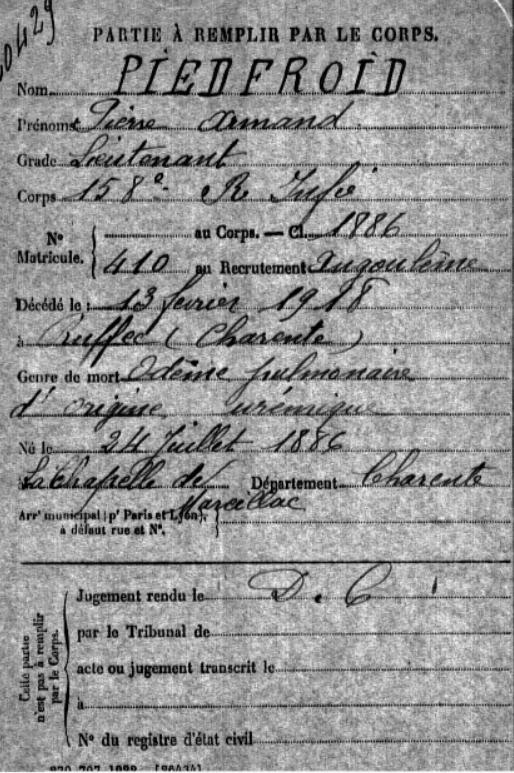 0429
PARTIE À REMPLIR PAR LE CORPS.
Nom PIEDFROID
Prénoms Pierre Armand
Grade Lieutenant
Corps 158e R Infie
N° Matricule. au Corps. — Cl. 1886
410 au Recrutement Angoulême
Décédé le : 13 février 1918
à Ruffec (Charente)
Genre de mort Odême pulmonaire
d'origine urémique
Né le 24 Juillet 1886
La Chapelle de Marcillac Département Charente
Arrt municipal (pr Paris et Lyon),
à défaut rue et N°.
Cette partie n'est pas à remplir par le Corps.
Jugement rendu le D. C
par le Tribunal de
acte ou jugement transcrit le
à
N° du registre d'état civil